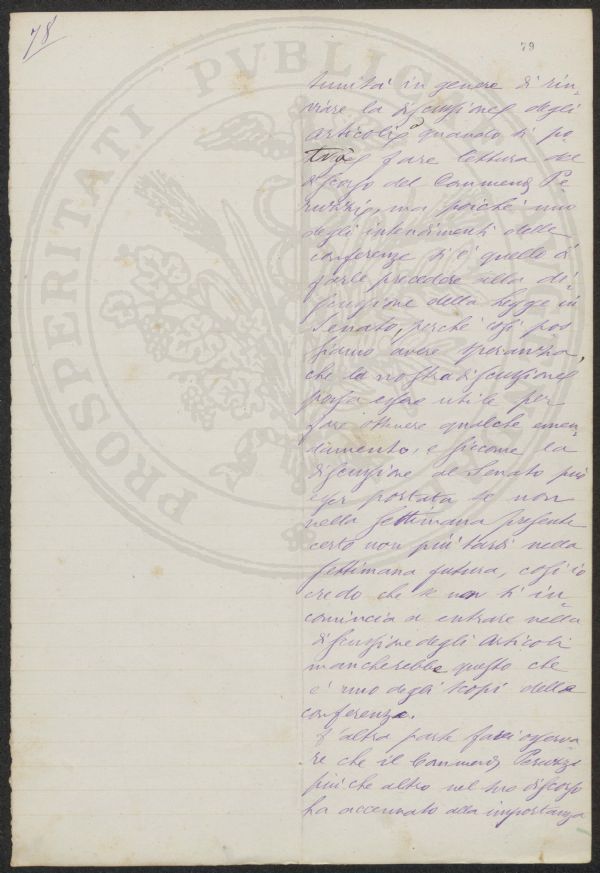 78
79
tunità in genere di rin-
viare la discussione degli
articoli a quando si po
trà fare lettura del
discorso del Commend. Pe
ruzzi, ma poichè uno
degli intendimenti delle
conferenze si è quello di
farle precedere alla di-
scussione della legge in
Senato, perchè così pos
siamo avere speranza,
che la nostra discussione
possa essere utile per
fare ottenere qualche emen-
damento, e siccome la
discussione al Senato può
esser portata se non
nella settimana presente
certo non più tardi nella
settimana futura, così io
credo che se non si in-
comincia a entrare nella
discussione degli articoli
mancherebbe questo che
è uno degli scopi della
conferenza.
D'altra parte farei osserva
re che il Commend. Peruzzi
più che altro nel suo discorso
ha accennato alla importanza
PROSPERITATI PVBLICAE